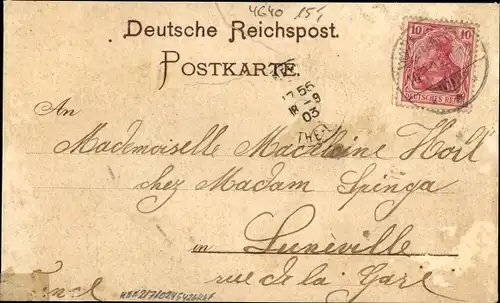 4640 15,
Deutsche Reichspost.
POSTKARTE.
10 10
DEUTSCHES REICH
1755
18 - 9
03
An
Mademoiselle Madeleine
chez Madam Spinga
in Lunéville
rue de la Gare